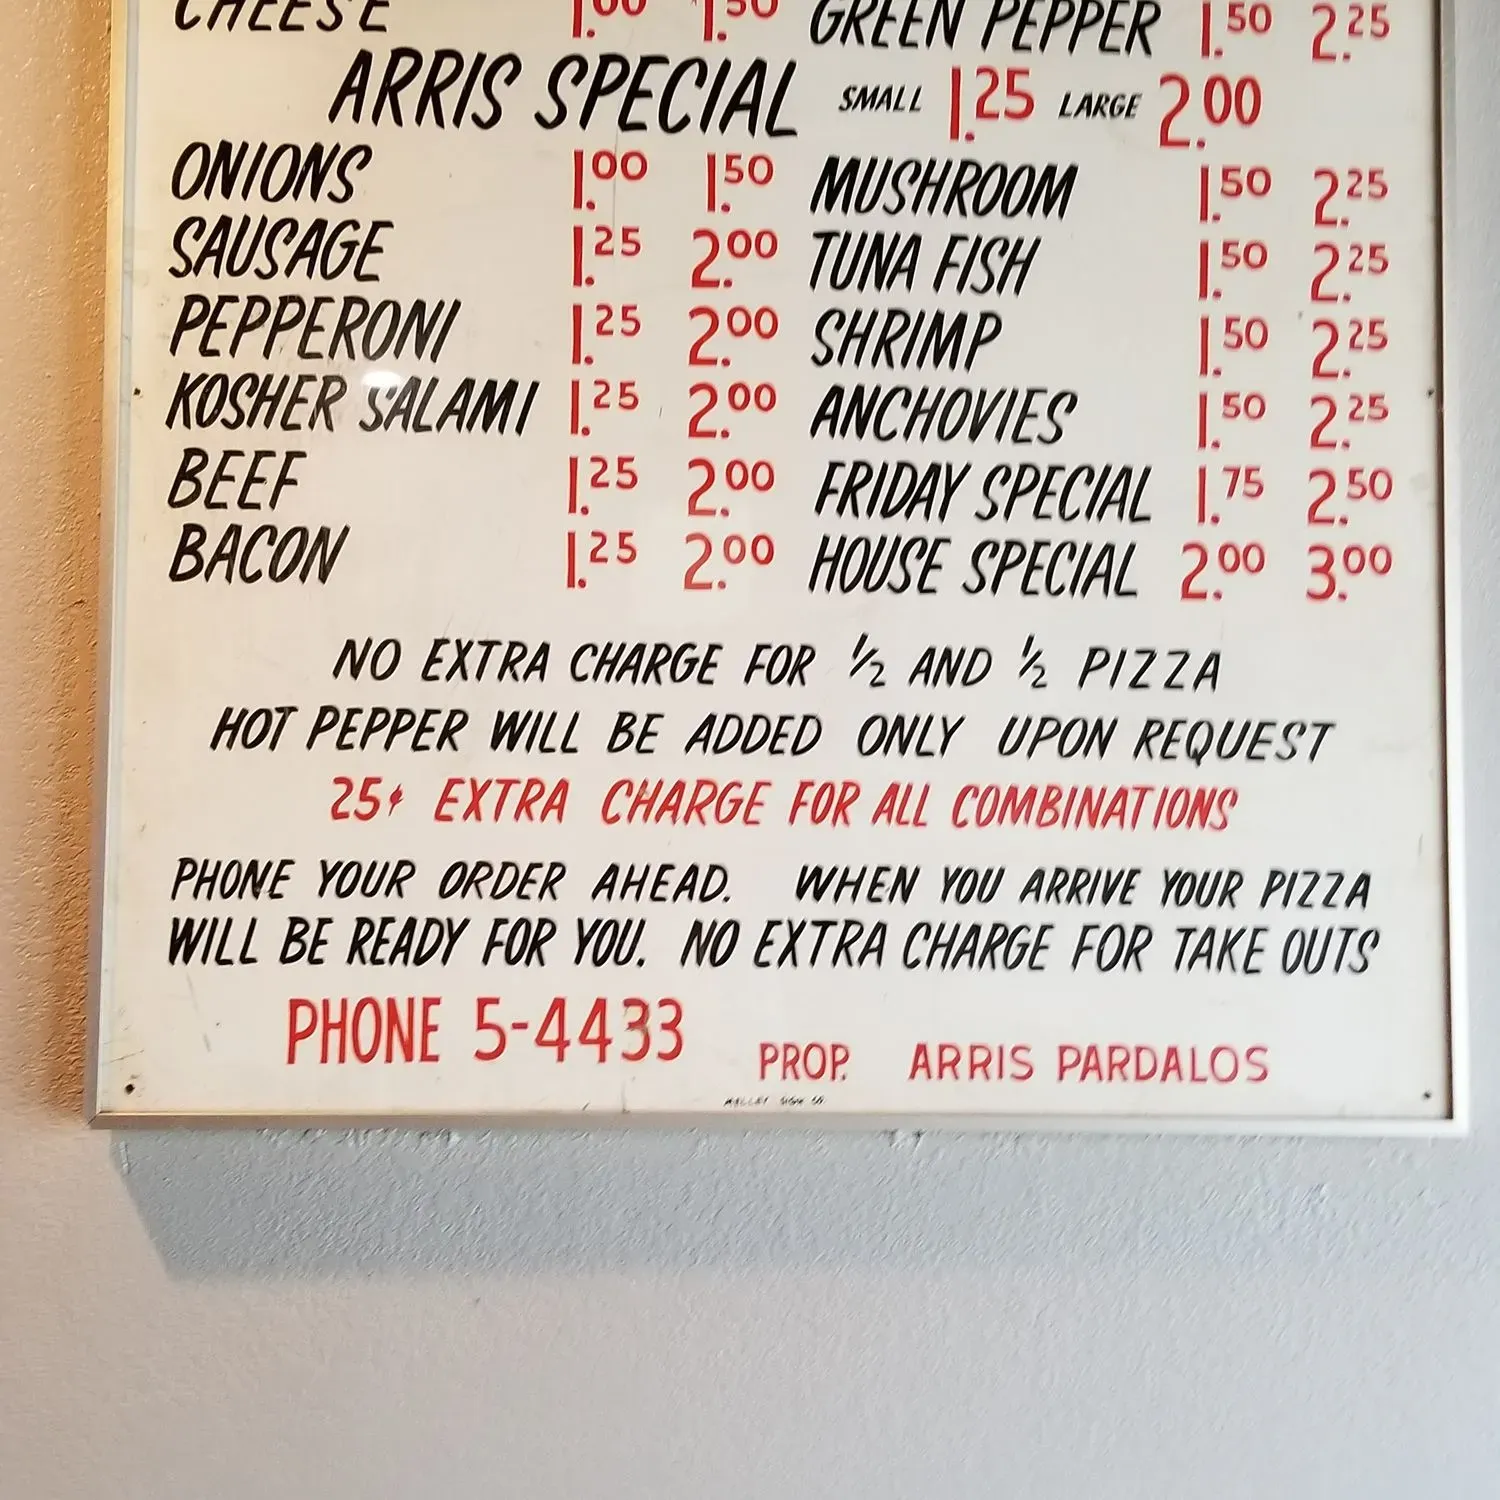 CHEESE 1.00 1.50 GREEN PEPPER 1.50 2.25
ARRIS SPECIAL SMALL 1.25 LARGE 2.00
ONIONS 1.00 1.50 MUSHROOM 1.50 2.25
SAUSAGE 1.25 2.00 TUNA FISH 1.50 2.25
PEPPERONI 1.25 2.00 SHRIMP 1.50 2.25
KOSHER SALAMI 1.25 2.00 ANCHOVIES 1.50 2.25
BEEF 1.25 2.00 FRIDAY SPECIAL 1.75 2.50
BACON 1.25 2.00 HOUSE SPECIAL 2.00 3.00
NO EXTRA CHARGE FOR 1/2 AND 1/2 PIZZA
HOT PEPPER WILL BE ADDED ONLY UPON REQUEST
25¢ EXTRA CHARGE FOR ALL COMBINATIONS
PHONE YOUR ORDER AHEAD. WHEN YOU ARRIVE YOUR PIZZA
WILL BE READY FOR YOU. NO EXTRA CHARGE FOR TAKE OUTS
PHONE 5-4433 PROP. ARRIS PARDALOS
SIGN CO.